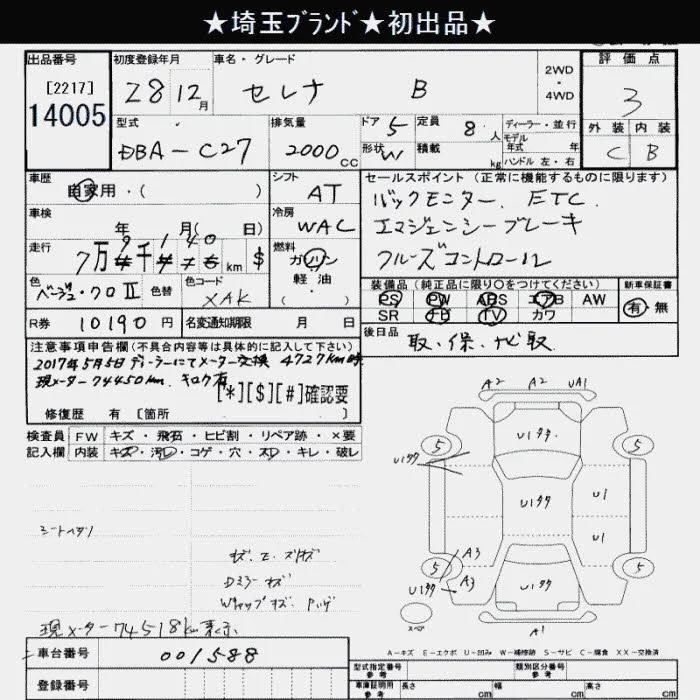 ★埼玉ﾌﾞﾗﾝﾄﾞ★初出品★
出品番号 初度登録年月 車名・グレード 2WD・4WD 評価点
[2217]
14005 28 12月 セレナ B 3
型式 排気量 ドア 定員 ディーラー・並行 外装 内装
DBA-C27 2000cc 5 8人 モデル年式 年 C B
形状 W 積載 kg ハンドル 左・右
車歴 シフト セールスポイント（正常に機能するものに限ります）
自家用・（ ） AT バックモニター、ETC、
車検 冷房 エマジェンシーブレーキ
年 月（ 日） WAC クルーズコントロール
走行 燃料
7万 9千 1 4 0 km $ ガソリン
軽油
（ ）
色 色替 色コード 装備品（純正品に限り○をつけてください） 新車保証書
ベージュ・クロⅡ XAK PS PW ABS エアB AW 有・無
SR ナビ TV カワ
R券 10190円 名変通知期限 月 日 後日品
取、保、ナビ取
注意事項申告欄(不具合内容等は具体的に記入して下さい)
2017年5月5日 ディーラーにてメーター交換 4727km時
現メーター74450km、キロク有
[*][$][#]確認要
修復歴 有 [箇所 ]
検査員 FW キズ・飛石・ヒビ割・リペア跡・×要
記入欄 内装 キズ・汚レ・コゲ・穴・スレ・キレ・破レ
A2 A2 UA1
5 5
U1タタ
U1タタ
U1タタ U1
U1
シートヘタリ
A3
5 5
A3
U1タタ
U1タタ
キズ、E、スリキズ
Dミラーキズ
スペア
A1
現メーター74518km表示
A-キズ E-エクボ U-凹み W-補修跡 S-サビ C-腐食 XX-交換済
車台番号 001588
型式指定番号 参考 類別区分番号 参考
登録番号
車庫証明用 参考 長さ cm 幅 cm 高さ cm